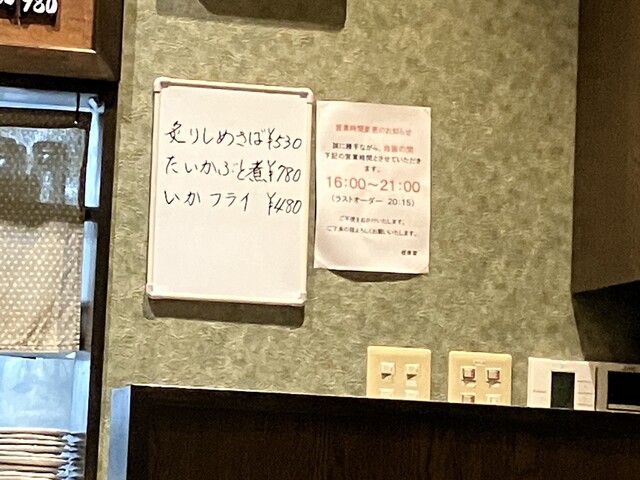 980
炙りしめさば ¥530
たいかぶと煮 ¥780
いかフライ ¥480
営業時間変更のお知らせ
誠に勝手ながら、当面の間
下記の営業時間とさせていただき
ます。
16:00～21:00
（ラストオーダー 20:15）
ご不便をお掛けいたします。
ご了承の程よろしくお願いいたします。